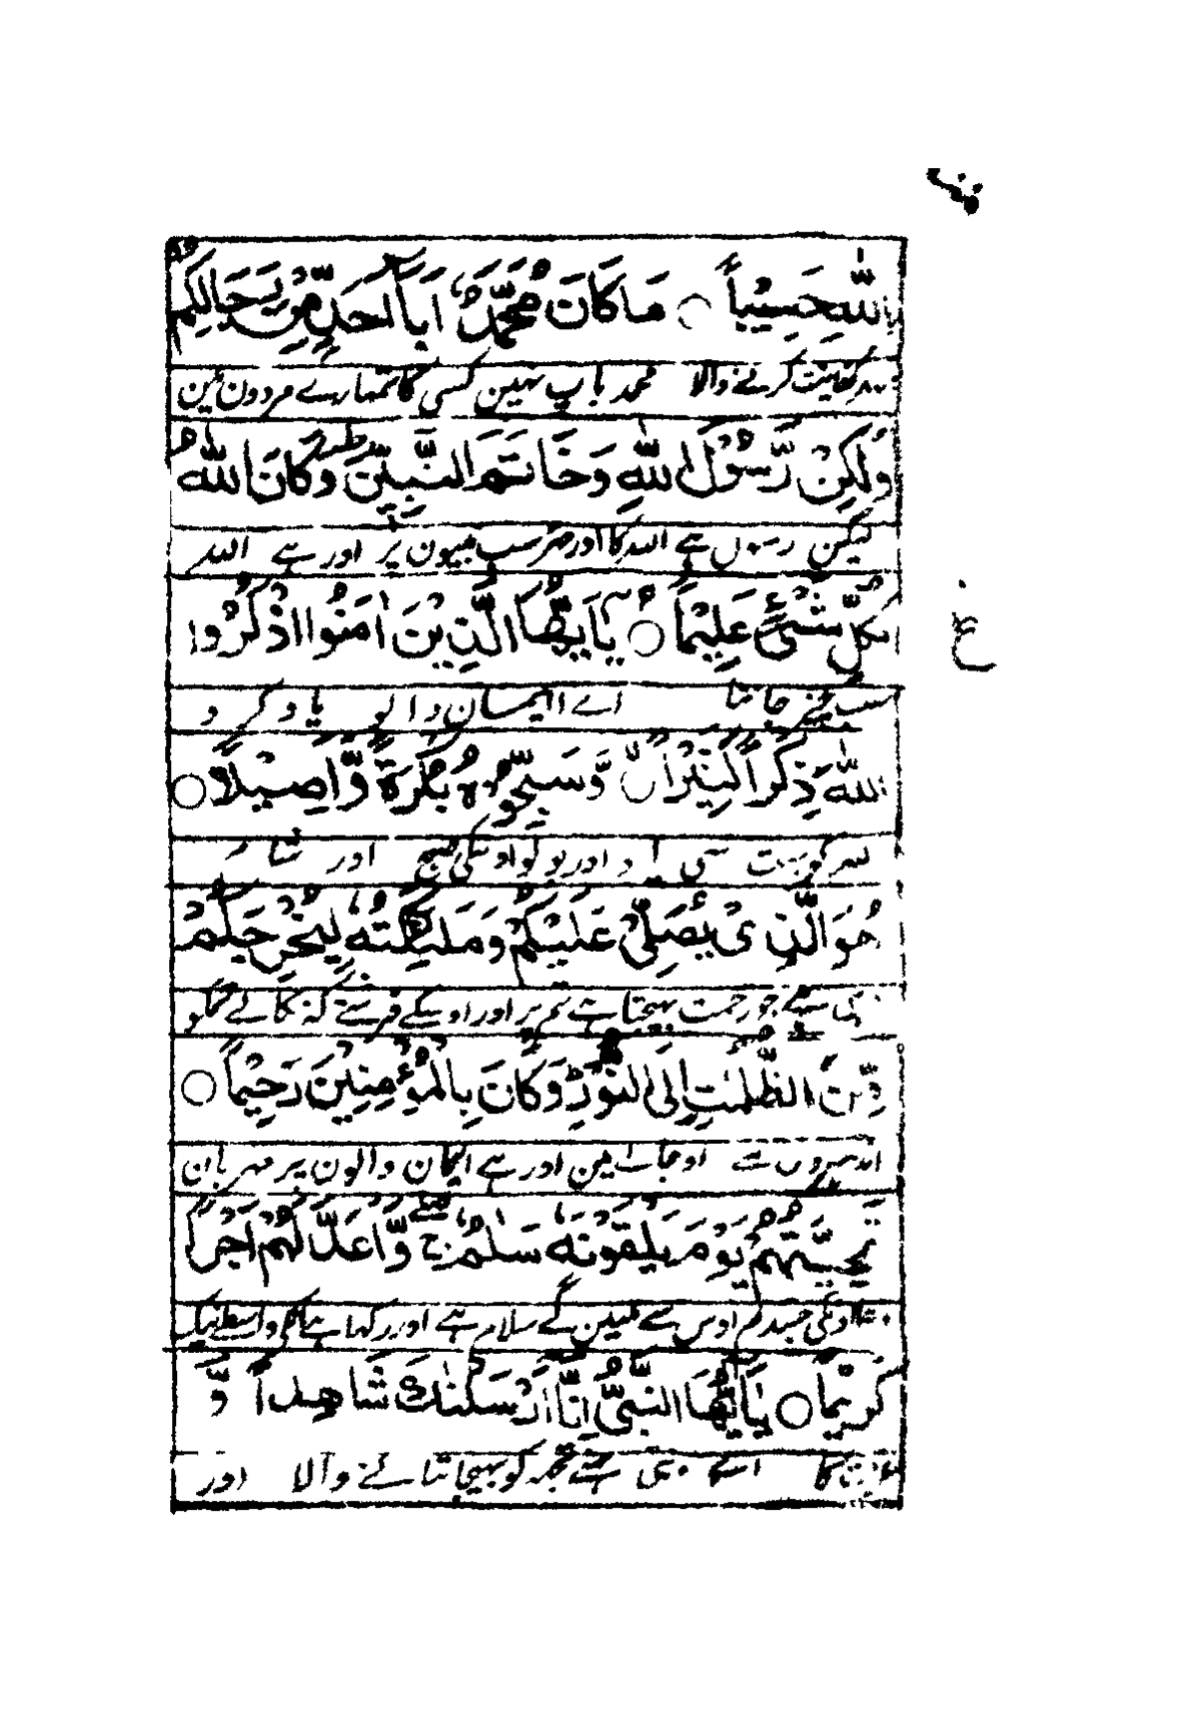 بِاللّٰهِ حَسِيْبًا ○ مَا كَانَ مُحَمَّدٌ اَبَآ اَحَدٍ مِّنْ رِّجَالِكُمْ
كفايت كرنے والا محمد باپ نہين كسى كا تمہارے مردون مين
وَلٰكِنْ رَّسُوْلَ اللّٰهِ وَخَاتَمَ النَّبِيّٖنَ ط وَكَانَ اللّٰهُ
ليكن رسول ہے الله كا اور مہر سب نبيون پر اور ہے الله
بِكُلِّ شَيْءٍ عَلِيْمًا ○ ع يٰٓاَيُّهَا الَّذِيْنَ اٰمَنُوا اذْكُرُوا
سب چيز جانتا اے ايمان والو ياد كرو
اللّٰهَ ذِكْرًا كَثِيْرًا لا وَّسَبِّحُوْهُ بُكْرَةً وَّاَصِيْلًا ○
كو بہت سى ياد اور بولو اوسكى صبح اور شام
هُوَ الَّذِيْ يُصَلِّيْ عَلَيْكُمْ وَمَلٰٓئِكَتُهٗ لِيُخْرِجَكُمْ
وہى ہے جو رحمت بہيجتا ہے تم پر اور اوسكے فرشتے كہ نكالے تمكو
مِّنَ الظُّلُمٰتِ اِلَى النُّوْرِ ط وَكَانَ بِالْمُؤْمِنِيْنَ رَحِيْمًا ○
اندہيرون سے اوجالے مين اور ہے ايمان والون پر مہربان
تَحِيَّتُهُمْ يَوْمَ يَلْقَوْنَهٗ سَلٰمٌ ج وَّاَعَدَّ لَهُمْ اَجْرًا
دعا اونكى جسدن اوس سے ملينگے سلام ہے اور ركہا ہے اونكے واسطے نيگ
كَرِيْمًا ○ يٰٓاَيُّهَا النَّبِيُّ اِنَّآ اَرْسَلْنٰكَ شَاهِدًا وَّ
عزت كا اے نبى ہمنے تجہہ كو بہيجا بتانے والا اور
ع